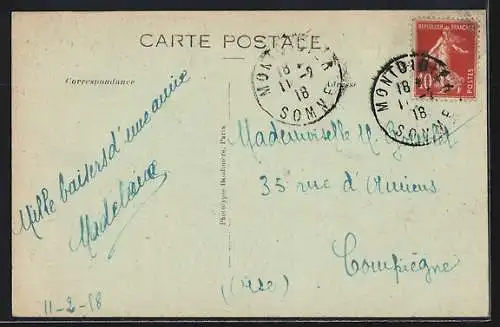 CARTE POSTALE
Correspondance
Adresse
REPUBLIQUE FRANÇAISE
10
POSTES
MONTDIDIER
18
11 - 2
18
SOMME
MONTDIDIER
18
11
18
SOMME
Mille baisers d'une amie
Madeleine
11-2-18
Phototype Desaix, Paris
Mademoiselle
35 rue d'Amiens
Compiègne
(Oise)